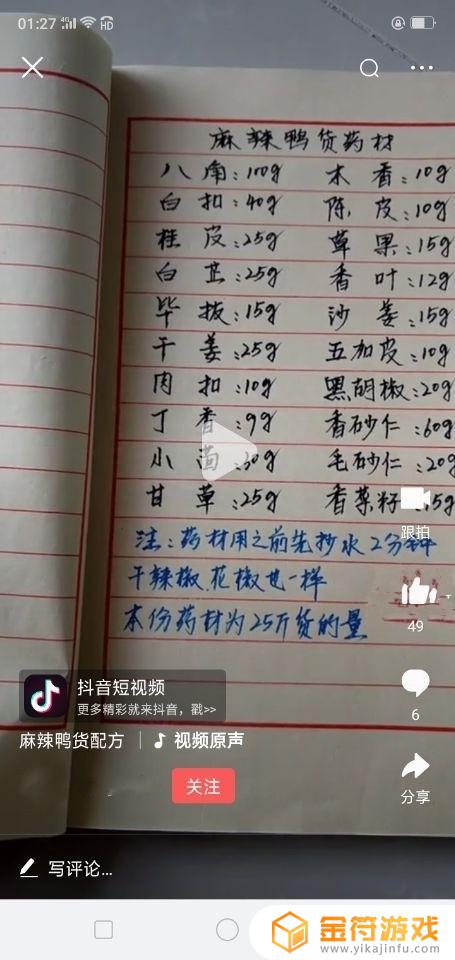 01:27 4G HD
麻辣鸭货药材
八角:100g 木香:10g
白扣:40g 陈皮:10g
桂皮:25g 草果:15g
白芷:25g 香叶:12g
毕拔:15g 沙姜:15g
干姜:25g 五加皮:10g
肉扣:10g 黑胡椒:20g
丁香:9g 香砂仁:60g
小茴:30g 毛砂仁:20g
甘草:25g 香菜籽:15g
注:药材用之前先抄水2分钟
跟拍
干辣椒.花椒也一样
本份药材为25斤货的量
49
抖音短视频
更多精彩就来抖音，戳>>
6
麻辣鸭货配方 | 视频原声
关注
分享
写评论...
金符游戏
www.yikajinfu.com